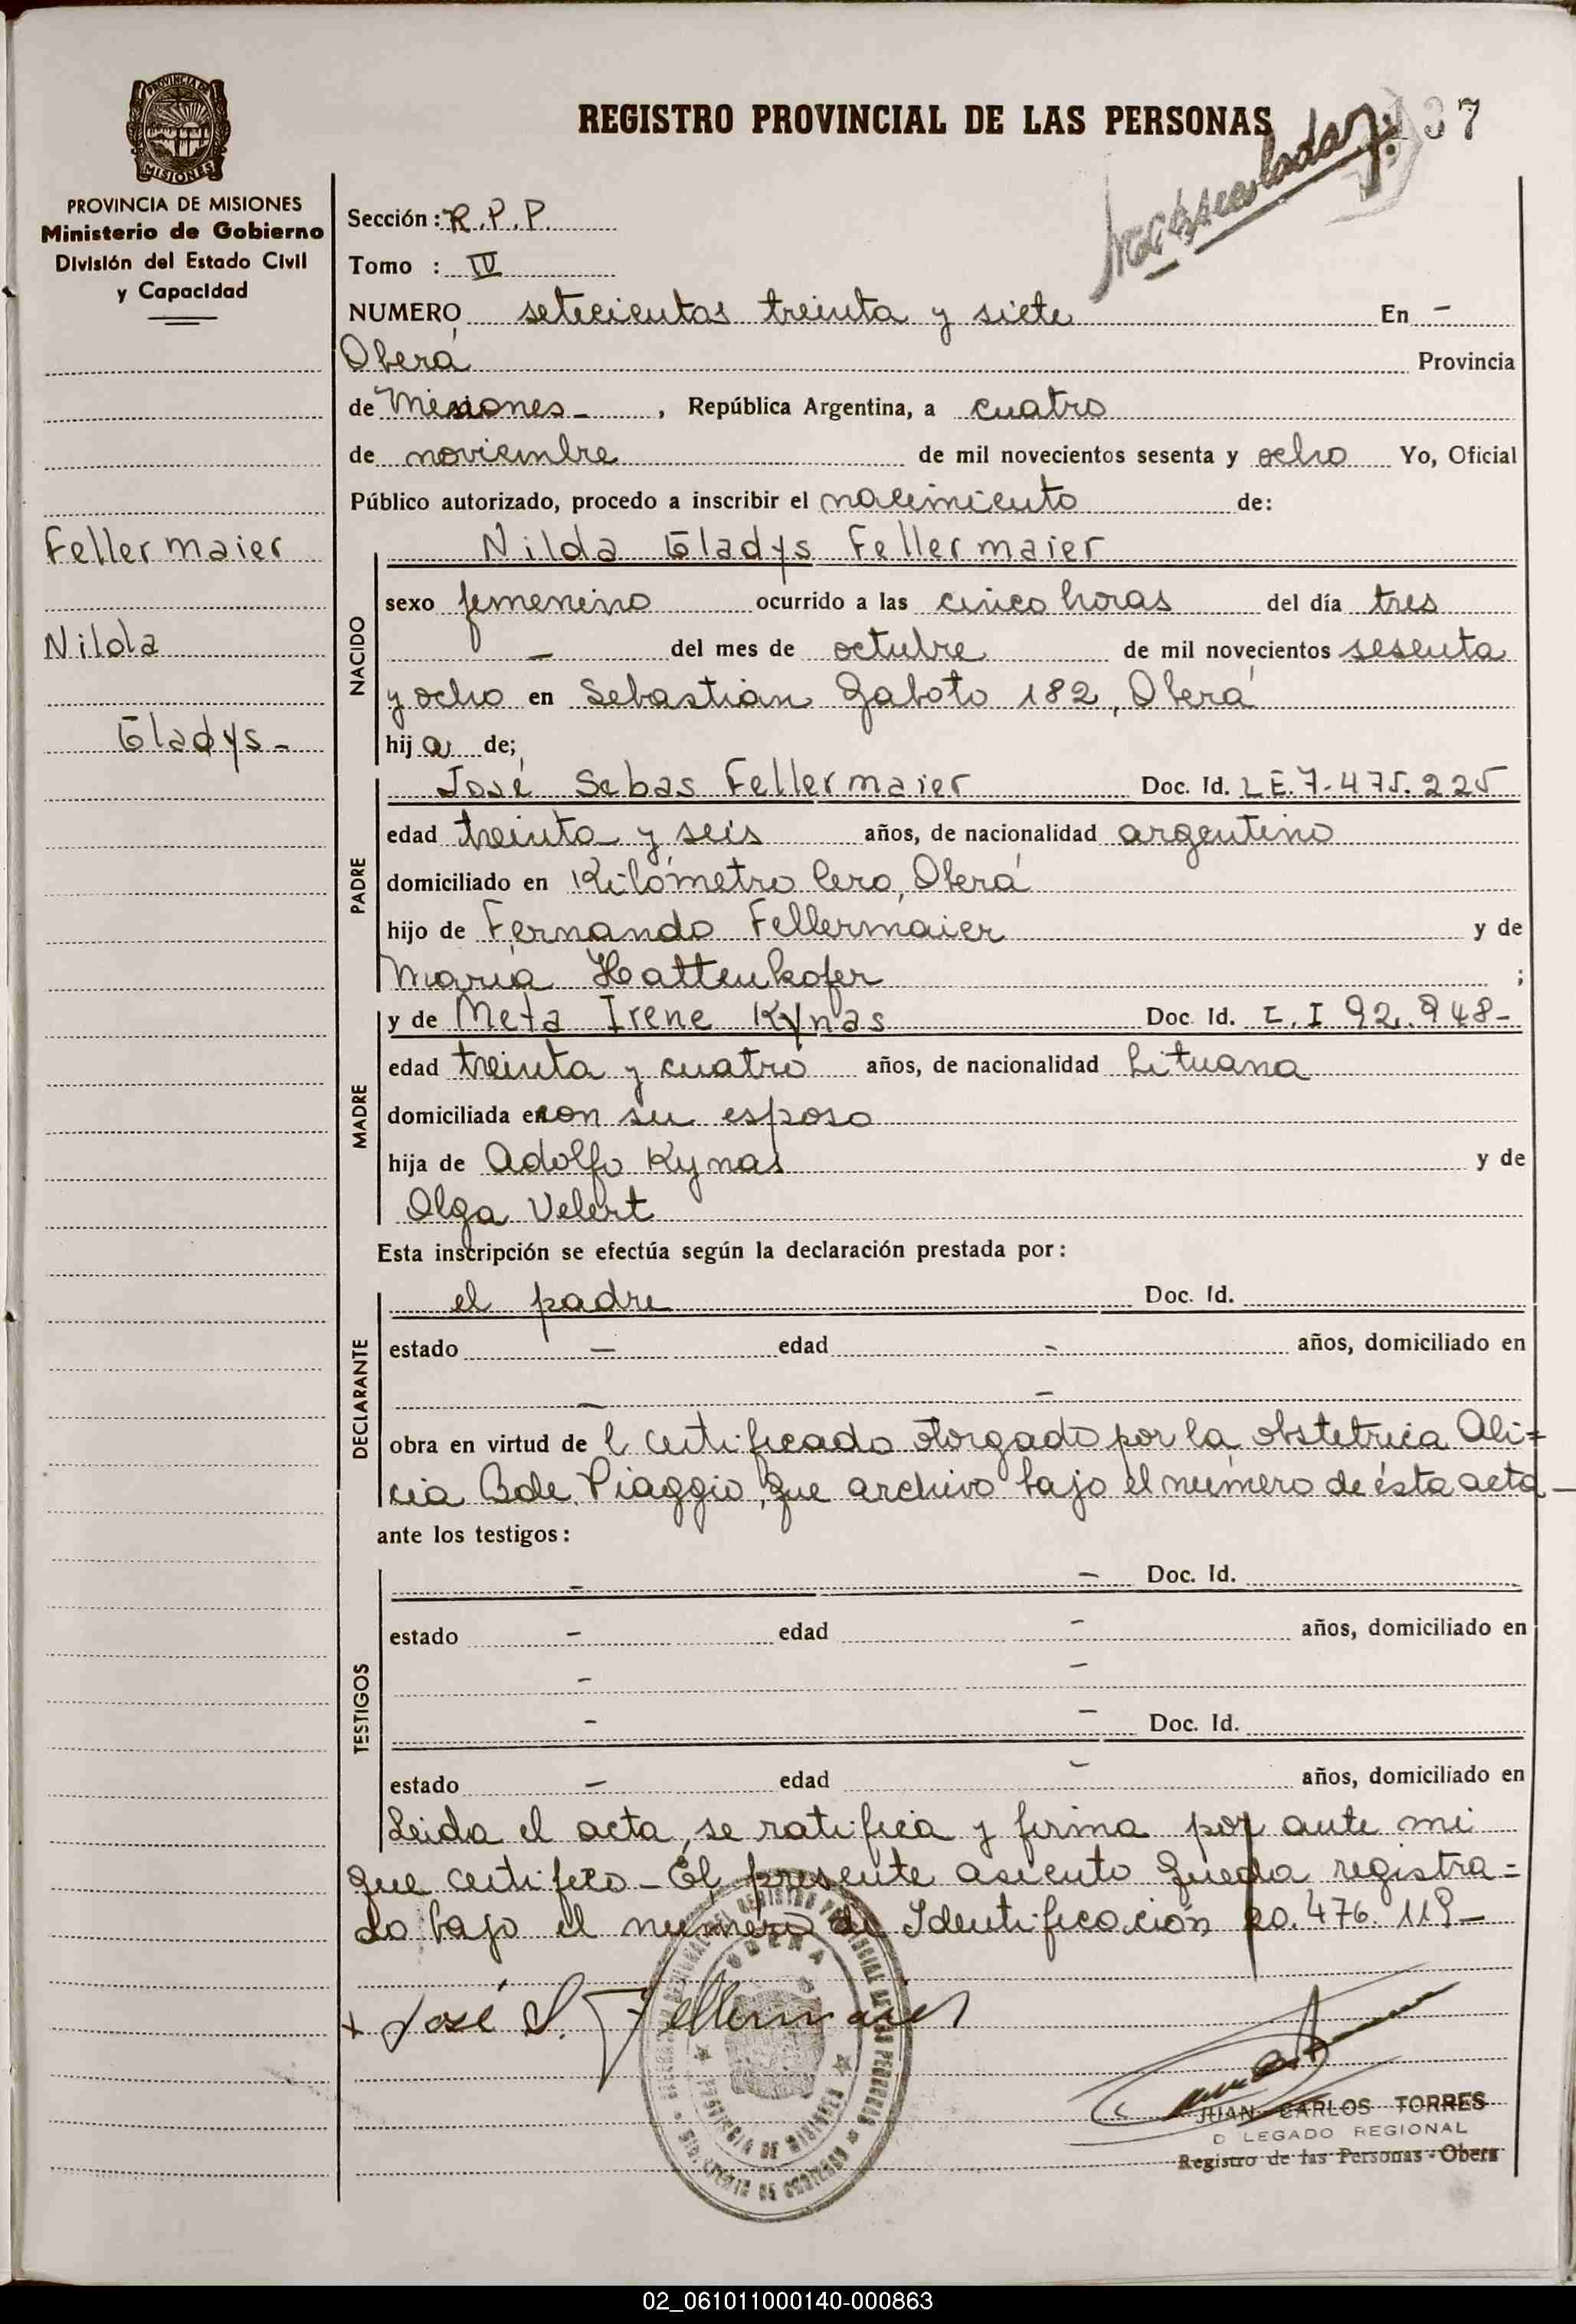 REGISTRO PROVINCIAL DE LAS PERSONAS
37
PROVINCIA DE MISIONES
Ministerio de Gobierno
División del Estado Civil
y Capacidad
Sección: R.P.P.
Tomo : IV
NUMERO setecientos treinta y siete En -
Oberá Provincia
de Misiones - , República Argentina, a cuatro
de noviembre de mil novecientos sesenta y ocho Yo, Oficial
Público autorizado, procedo a inscribir el nacimiento de:
Fellermaier
Nilda
Gladys -
NACIDO
Nilda Gladys Fellermaier
sexo femenino ocurrido a las cinco horas del día tres
- del mes de octubre de mil novecientos sesenta
y ocho en Sebastián Gaboto 182, Oberá
hija de;
PADRE
José Sebas Fellermaier Doc. Id. L.E. 7.475.225
edad treinta y seis años, de nacionalidad argentino
domiciliado en Kilómetro Cero, Oberá
hijo de Fernando Fellermaier y de
María Hattenkofer ;
MADRE
y de Meta Irene Kynas Doc. Id. 
edad treinta y cuatro años, de nacionalidad Lituana
domiciliada en con su esposo
hija de Adolfo Kynas y de
Olga Velert
Esta inscripción se efectúa según la declaración prestada por:
DECLARANTE
el padre Doc. Id.
estado - edad - años, domiciliado en
- -
obra en virtud de l certificado otorgado por la obstetrica Ali=
cia B de Piaggio, que archivo bajo el número de ésta acta -
ante los testigos:
TESTIGOS
- - Doc. Id.
estado - edad - años, domiciliado en
- -
- - Doc. Id.
estado - edad - años, domiciliado en
Leida el acta, se ratifica y firma por ante mi
que certifico - El presente asiento queda registra=
do bajo el número de Identificación 20.476.119 -
x José S. Fellermaier
OBERA
PROVINCIA DE MISIONES
JUAN CARLOS TORRES
D LEGADO REGIONAL
Registro de las Personas - Obera
02_061011000140-000863